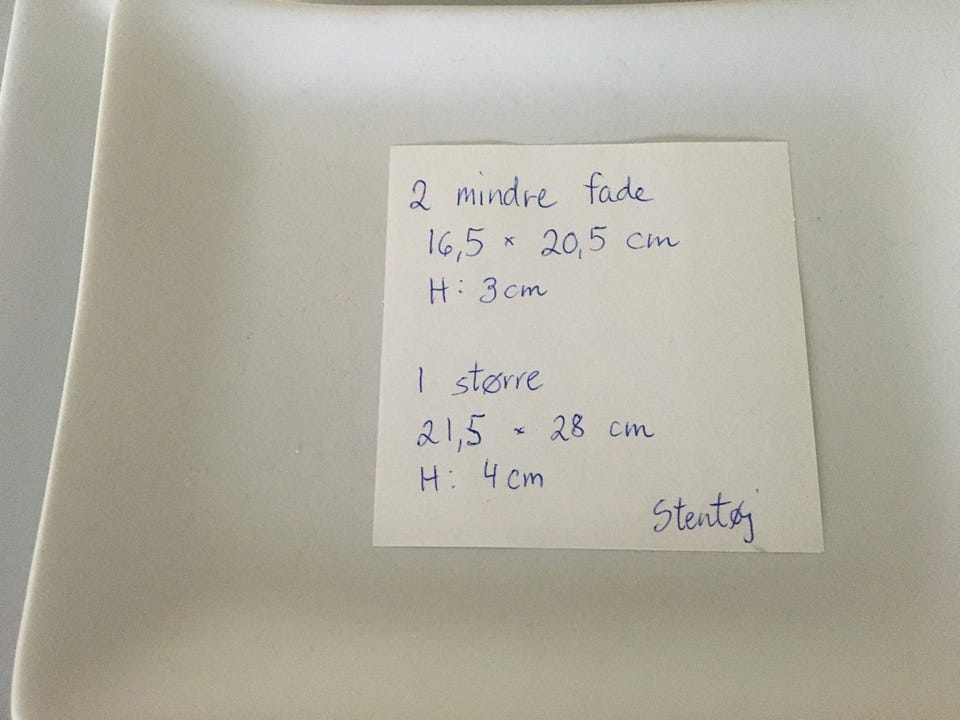 2 mindre fade
16,5 × 20,5 cm
H: 3 cm
1 større
21,5 × 28 cm
H: 4 cm
Stentøj